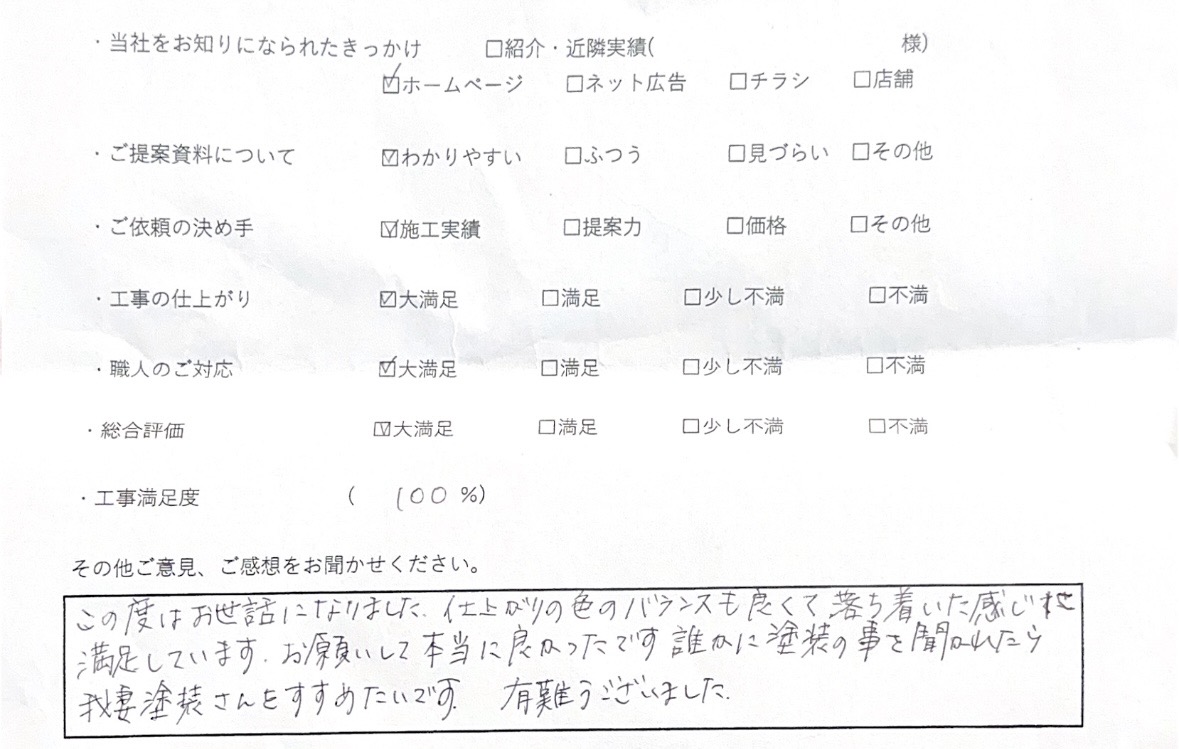 ・当社をお知りになられたきっかけ □紹介・近隣実績( 様)
☑ホームページ □ネット広告 □チラシ □店舗
・ご提案資料について ☑わかりやすい □ふつう □見づらい □その他
・ご依頼の決め手 ☑施工実績 □提案力 □価格 □その他
・工事の仕上がり ☑大満足 □満足 □少し不満 □不満
・職人のご対応 ☑大満足 □満足 □少し不満 □不満
・総合評価 ☑大満足 □満足 □少し不満 □不満
・工事満足度 ( 100 %)
その他ご意見、ご感想をお聞かせください。
この度はお世話になりました.仕上がりの色のバランスも良くて落ち着いた感じ
満足しています.お願いして本当に良かったです誰かに塗装の事を聞かれたら
我妻塗装さんをすすめたいです. 有難うございました.